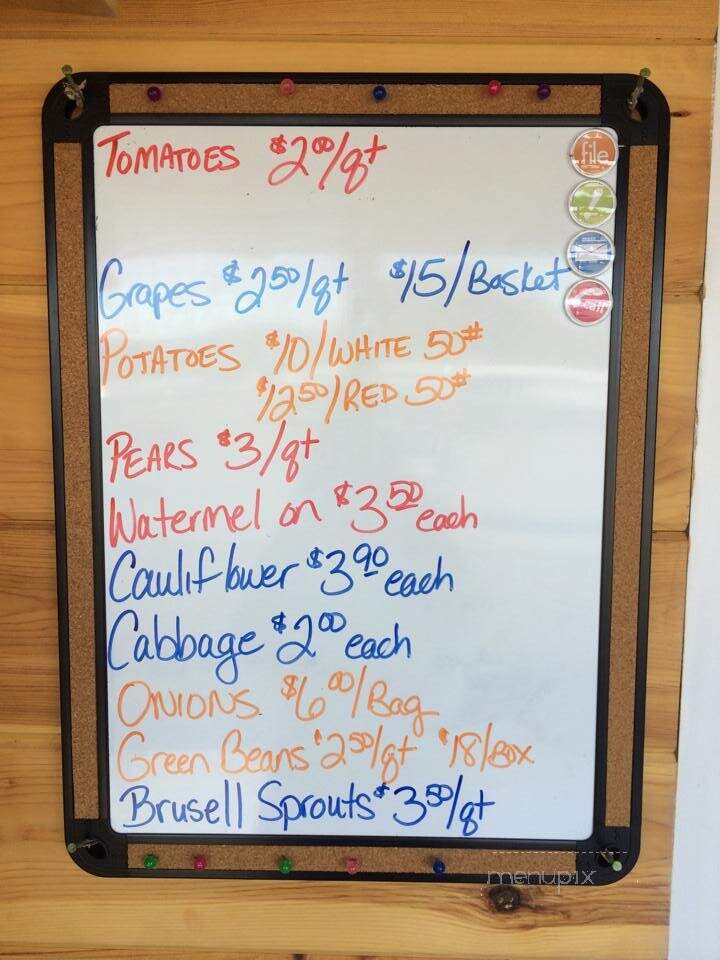 TOMATOES $2.00/qt
file
Grapes $2.50/qt $15/Basket
call
POTATOES $10/WHITE 50#
$12.50/RED 50#
PEARS $3/qt
Watermelon $3.50 each
Cauliflower $3.90 each
Cabbage $2.00 each
ONIONS $6.00/Bag
Green Beans $2.50/qt $18/Box
Brusell Sprouts $3.50/qt
menupix